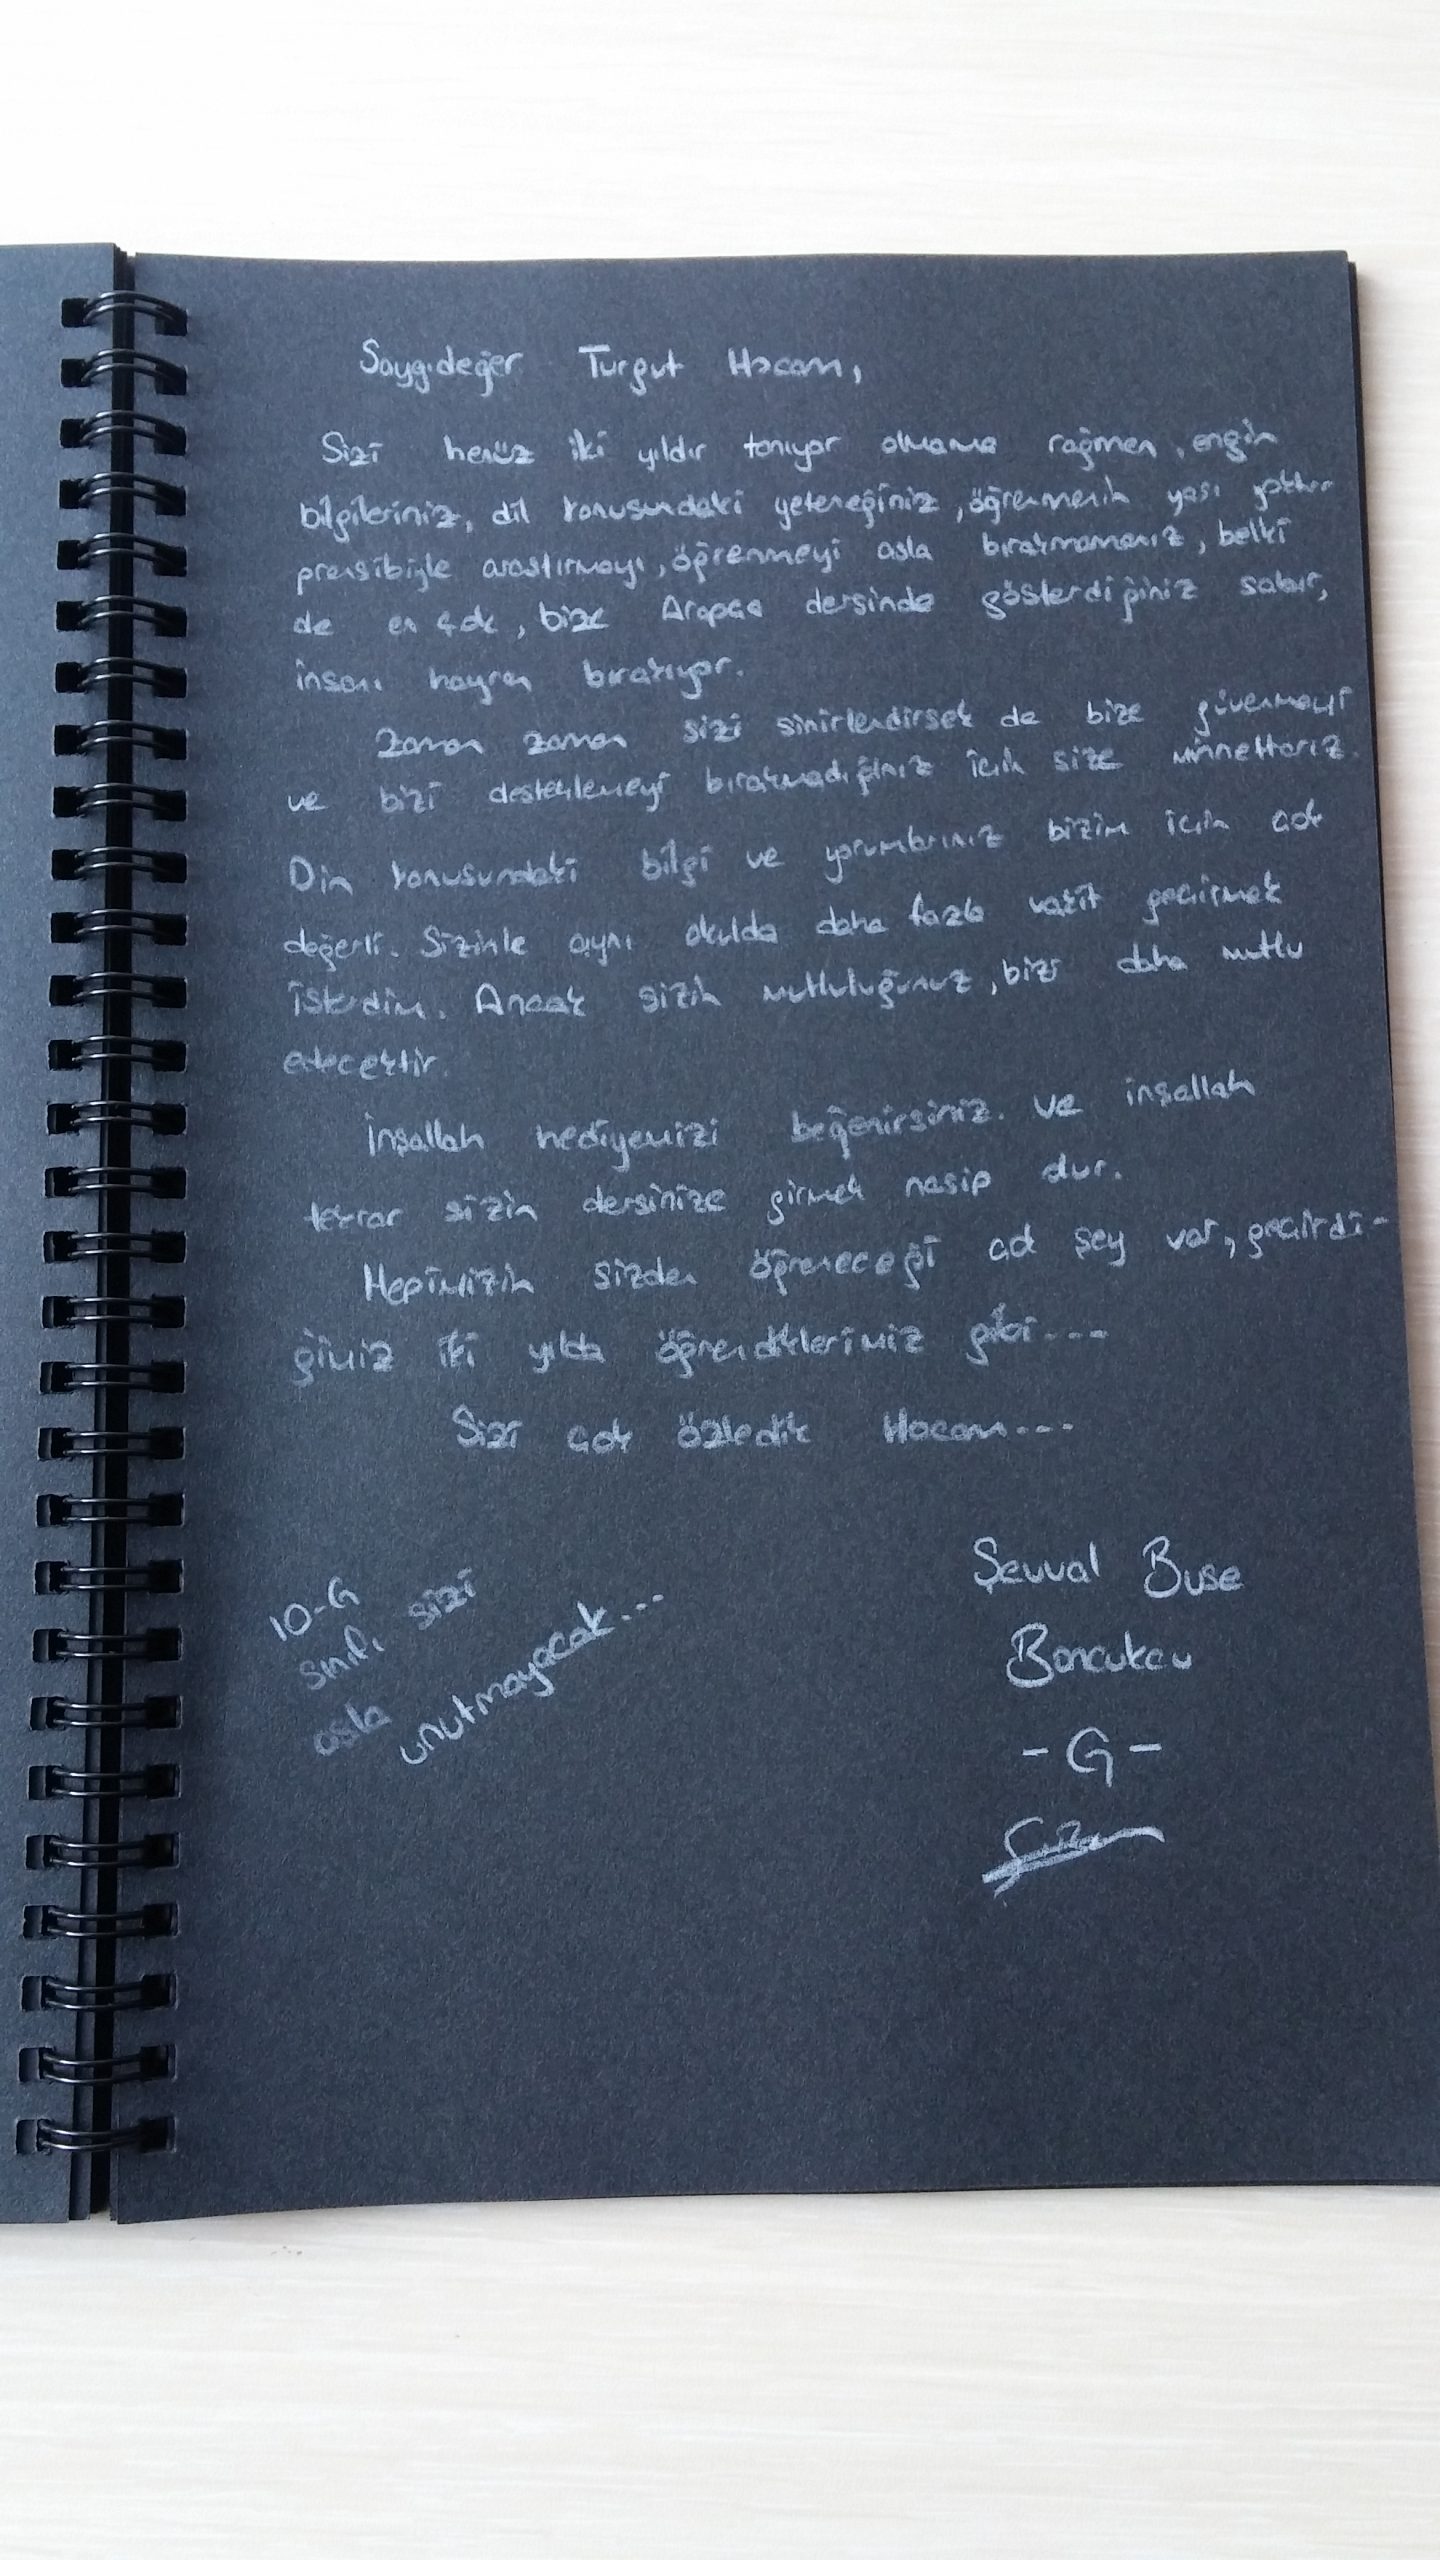 Saygıdeğer Turgut Hocam,
Sizi henüz iki yıldır tanıyor olmama rağmen, engin
bilgileriniz, dil konusundaki yeteneğiniz, öğrenmenin yaşı yoktur
prensibiyle araştırmayı, öğrenmeyi asla bırakmamanız, belki
de en çok, bize Arapça dersinde gösterdiğiniz sabır,
insanı hayran bırakıyor.
Zaman zaman sizi sinirlendirsek de bize güvenmeyi
ve bizi desteklemeyi bırakmadığınız için size minnettarız.
Din konusundaki bilgi ve yorumlarınız bizim için çok
değerli. Sizinle aynı okulda daha fazla vakit geçirmek
isterdim. Ancak sizin mutluluğunuz, bizi daha mutlu
edecektir.
İnşallah hediyemizi beğenirsiniz. Ve inşallah
tekrar sizin dersinize girmek nasip olur.
Hepimizin sizden öğreneceği çok şey var, geçirdi-
ğimiz iki yılda öğrendiklerimiz gibi...
Sizi çok özledik Hocam...
10-G
sınıfı sizi
asla
unutmayacak...
Şevval Buse
Boncukcu
-G-